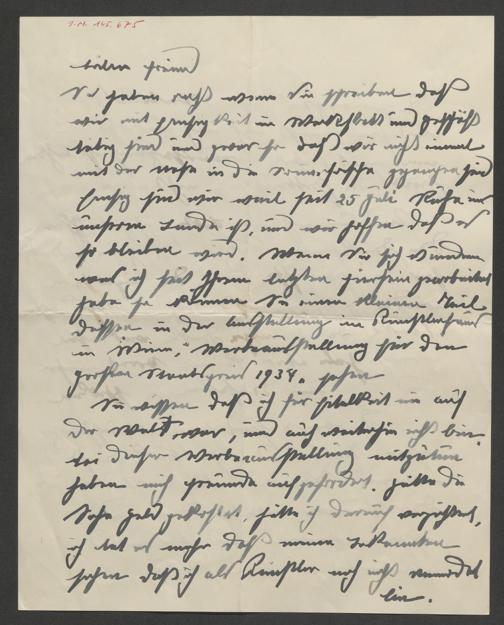 I.N. 145.675
Lieber Freund
Sie haben recht wenn Sie schreiben daß
wir mit in Werkstatt und Geschäft
tätig sind und zwar so daß wir nicht einmal
mit der Nase in die Sommerfrische gegangen sind
sind wir weil seit 25 Juli Ruhe in
unserem Lande ist, und wir hoffen daß es
so bleiben wird. Wenn Sie sich wundern
was ich seit Ihrem letzten Hiersein gearbeitet
habe so können Sie einen kleinen Teil
dessen in der Ausstellung im Künstlerhaus
in Wien, "Werbeausstellung für den
großen Staatspreis 1934" sehen
Sie wissen daß ich für Eitelkeit nie auf
der Welt war, und auch weiterhin nicht bin.
Bei dieser Werbeausstellung mitzutun
haben mich Freunde aufgefordert. Hätte die
Sache Geld gekostet, hätte ich darauf verzichtet,
ich tat es mehr daß meine Bekannten
sehen daß ich als Künstler noch nicht
bin.